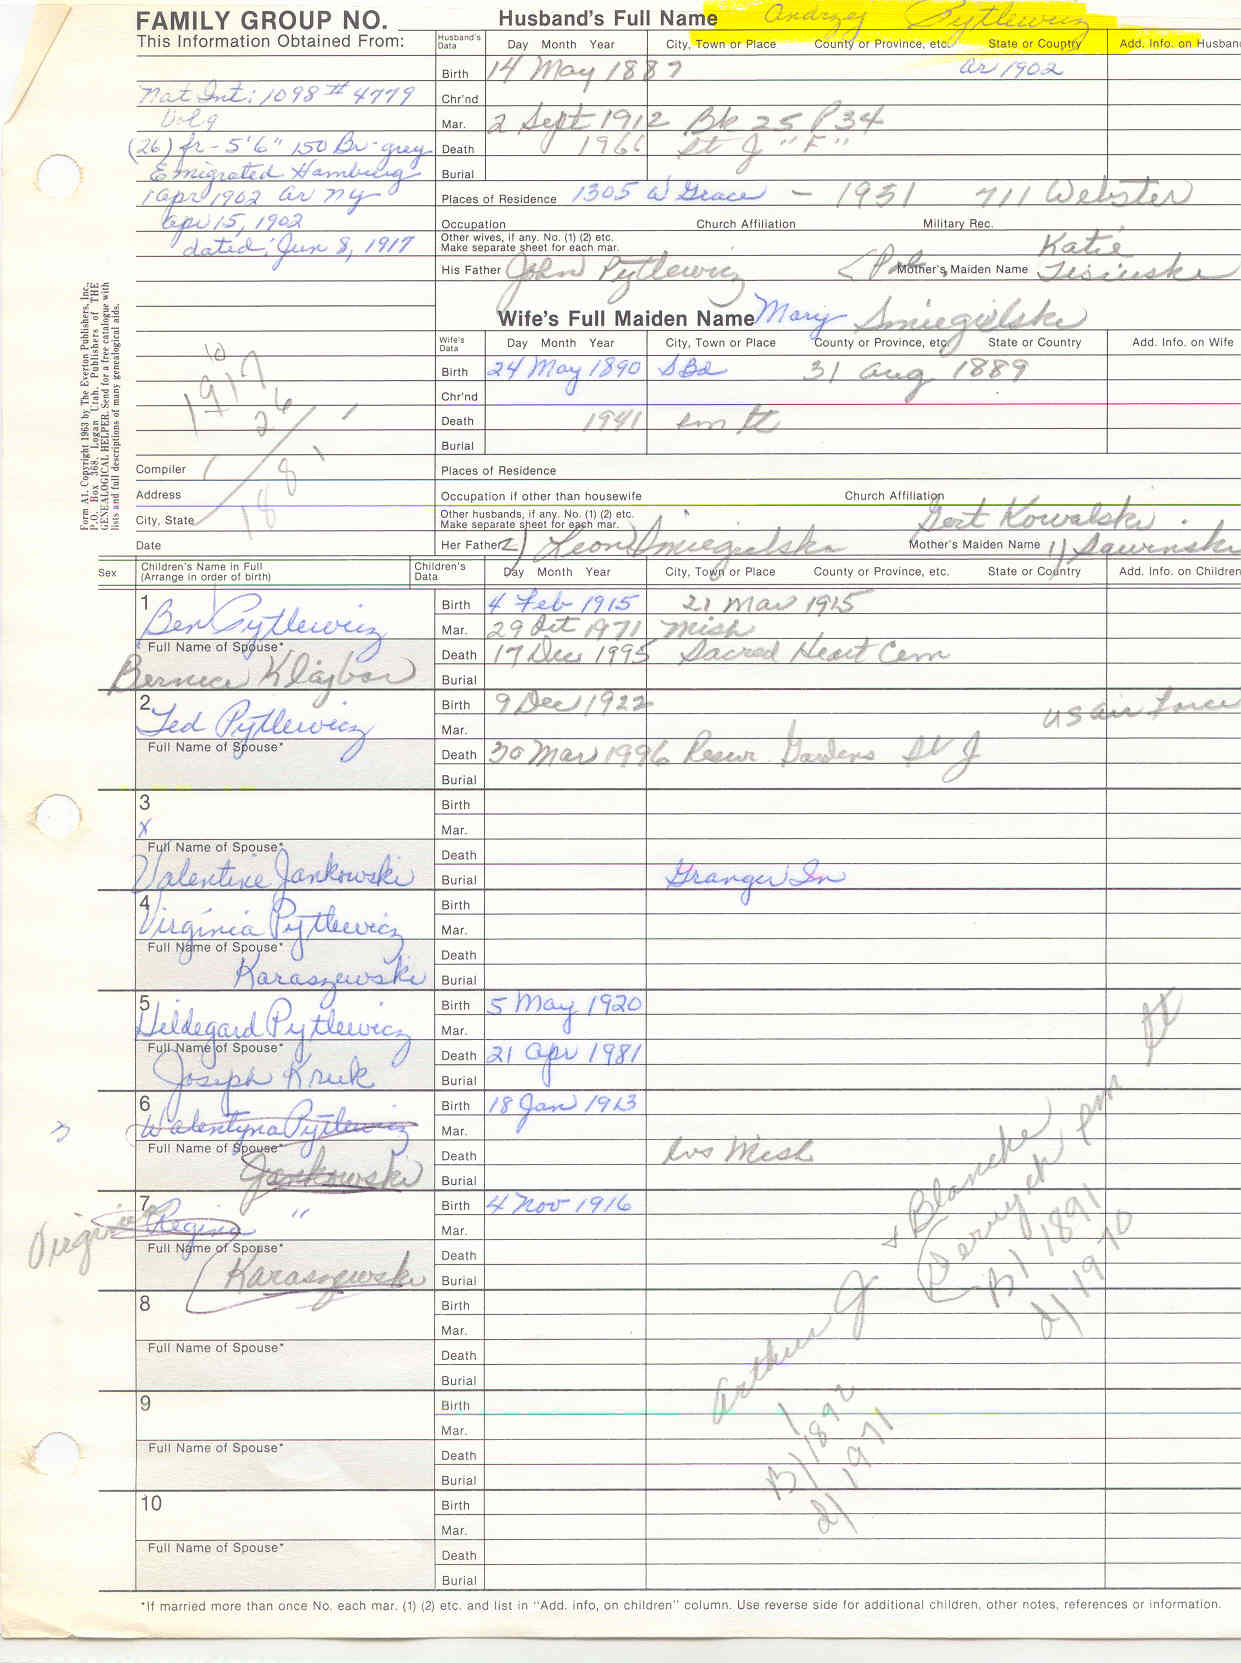 FAMILY GROUP NO.
Husband's Full Name Andrzej Pytlewicz
This Information Obtained From:
Husband's Data Day Month Year City, Town or Place County or Province, etc. State or Country Add. Info. on Husband
Birth 14 May 1887 ar 1902
Nat Int: 1098 # 4779
Chr'nd
Vol 9
Mar. 2 Sept 1912 Bk 25 P 34
(26) fr - 5'6" 150 Br-grey
Death 1966 St J "F"
Emigrated Hamburg
Burial
1 Apr 1902 ar NY
Places of Residence 1305 W Grace - 1931 711 Webster
Apr 15, 1902
Occupation Church Affiliation Military Rec.
dated: Jun 8, 1917
Other wives, if any. No. (1) (2) etc.
Make separate sheet for each mar.
His Father John Pytlewicz Mother's Maiden Name Katie
Wife's Full Maiden Name Mary Smiegielski
Wife's Data Day Month Year City, Town or Place County or Province, etc. State or Country Add. Info. on Wife
Birth 24 May 1890 SBd 31 Aug 1889
Chr'nd
Death 1941
Burial
10
1917
26
1
1881
Form A1. Copyright 1963 by The Everton Publishers, Inc.,
P.O. Box 368, Logan Utah, Publishers of THE
GENEALOGICAL HELPER. Send for a free catalogue with
lists and full descriptions of many genealogical aids.
Compiler
Places of Residence
Address
Occupation if other than housewife Church Affiliation
City, State
Other husbands, if any. No. (1) (2) etc.
Make separate sheet for each mar.
Gert Kowalski
Date
Her Father 2) Leon Smiegielski Mother's Maiden Name 1) Sawinski
Sex Children's Name in Full
(Arrange in order of birth)
Children's Data Day Month Year City, Town or Place County or Province, etc. State or Country Add. Info. on Children
1
Ben Pytlewicz
Birth 4 Feb 1915 21 Mar 1915
Mar. 29 Oct 1971 Mish
Full Name of Spouse*
Death 17 Dec 1995 Sacred Heart Cem
Bernice Klajbor
Burial
2
Ted Pytlewicz
Birth 9 Dec 1922 US Air Force
Mar.
Full Name of Spouse*
Death 30 Mar 1996 Gardens St J
Burial
3
x
Birth
Mar.
Full Name of Spouse*
Death
Valentine Jankowski
Burial Granger In
4
Virginia Pytlewicz
Birth
Mar.
Full Name of Spouse*
Death
Karaszewski
Burial
5
Hildegard Pytlewicz
Birth 5 May 1920
Mar.
Full Name of Spouse*
Death 21 Apr 1981
Joseph Kruk
Burial
6
Walentyna Pytlewicz
Birth 18 Jan 1913
Mar.
Full Name of Spouse*
Death lvs Mish
Jankowski
Burial
7
Virginia Regina "
Birth 4 Nov 1916
Mar.
Full Name of Spouse*
Death
Karaszewski
Burial
8
Birth
Mar.
Full Name of Spouse*
Death
Burial
Arthur J
B) 1892
d) 1971
+ Blanche
B) 1891
d) 1970
9
Birth
Mar.
Full Name of Spouse*
Death
Burial
10
Birth
Mar.
Full Name of Spouse*
Death
Burial
*If married more than once No. each mar. (1) (2) etc. and list in "Add. info, on children" column. Use reverse side for additional children, other notes, references or information.